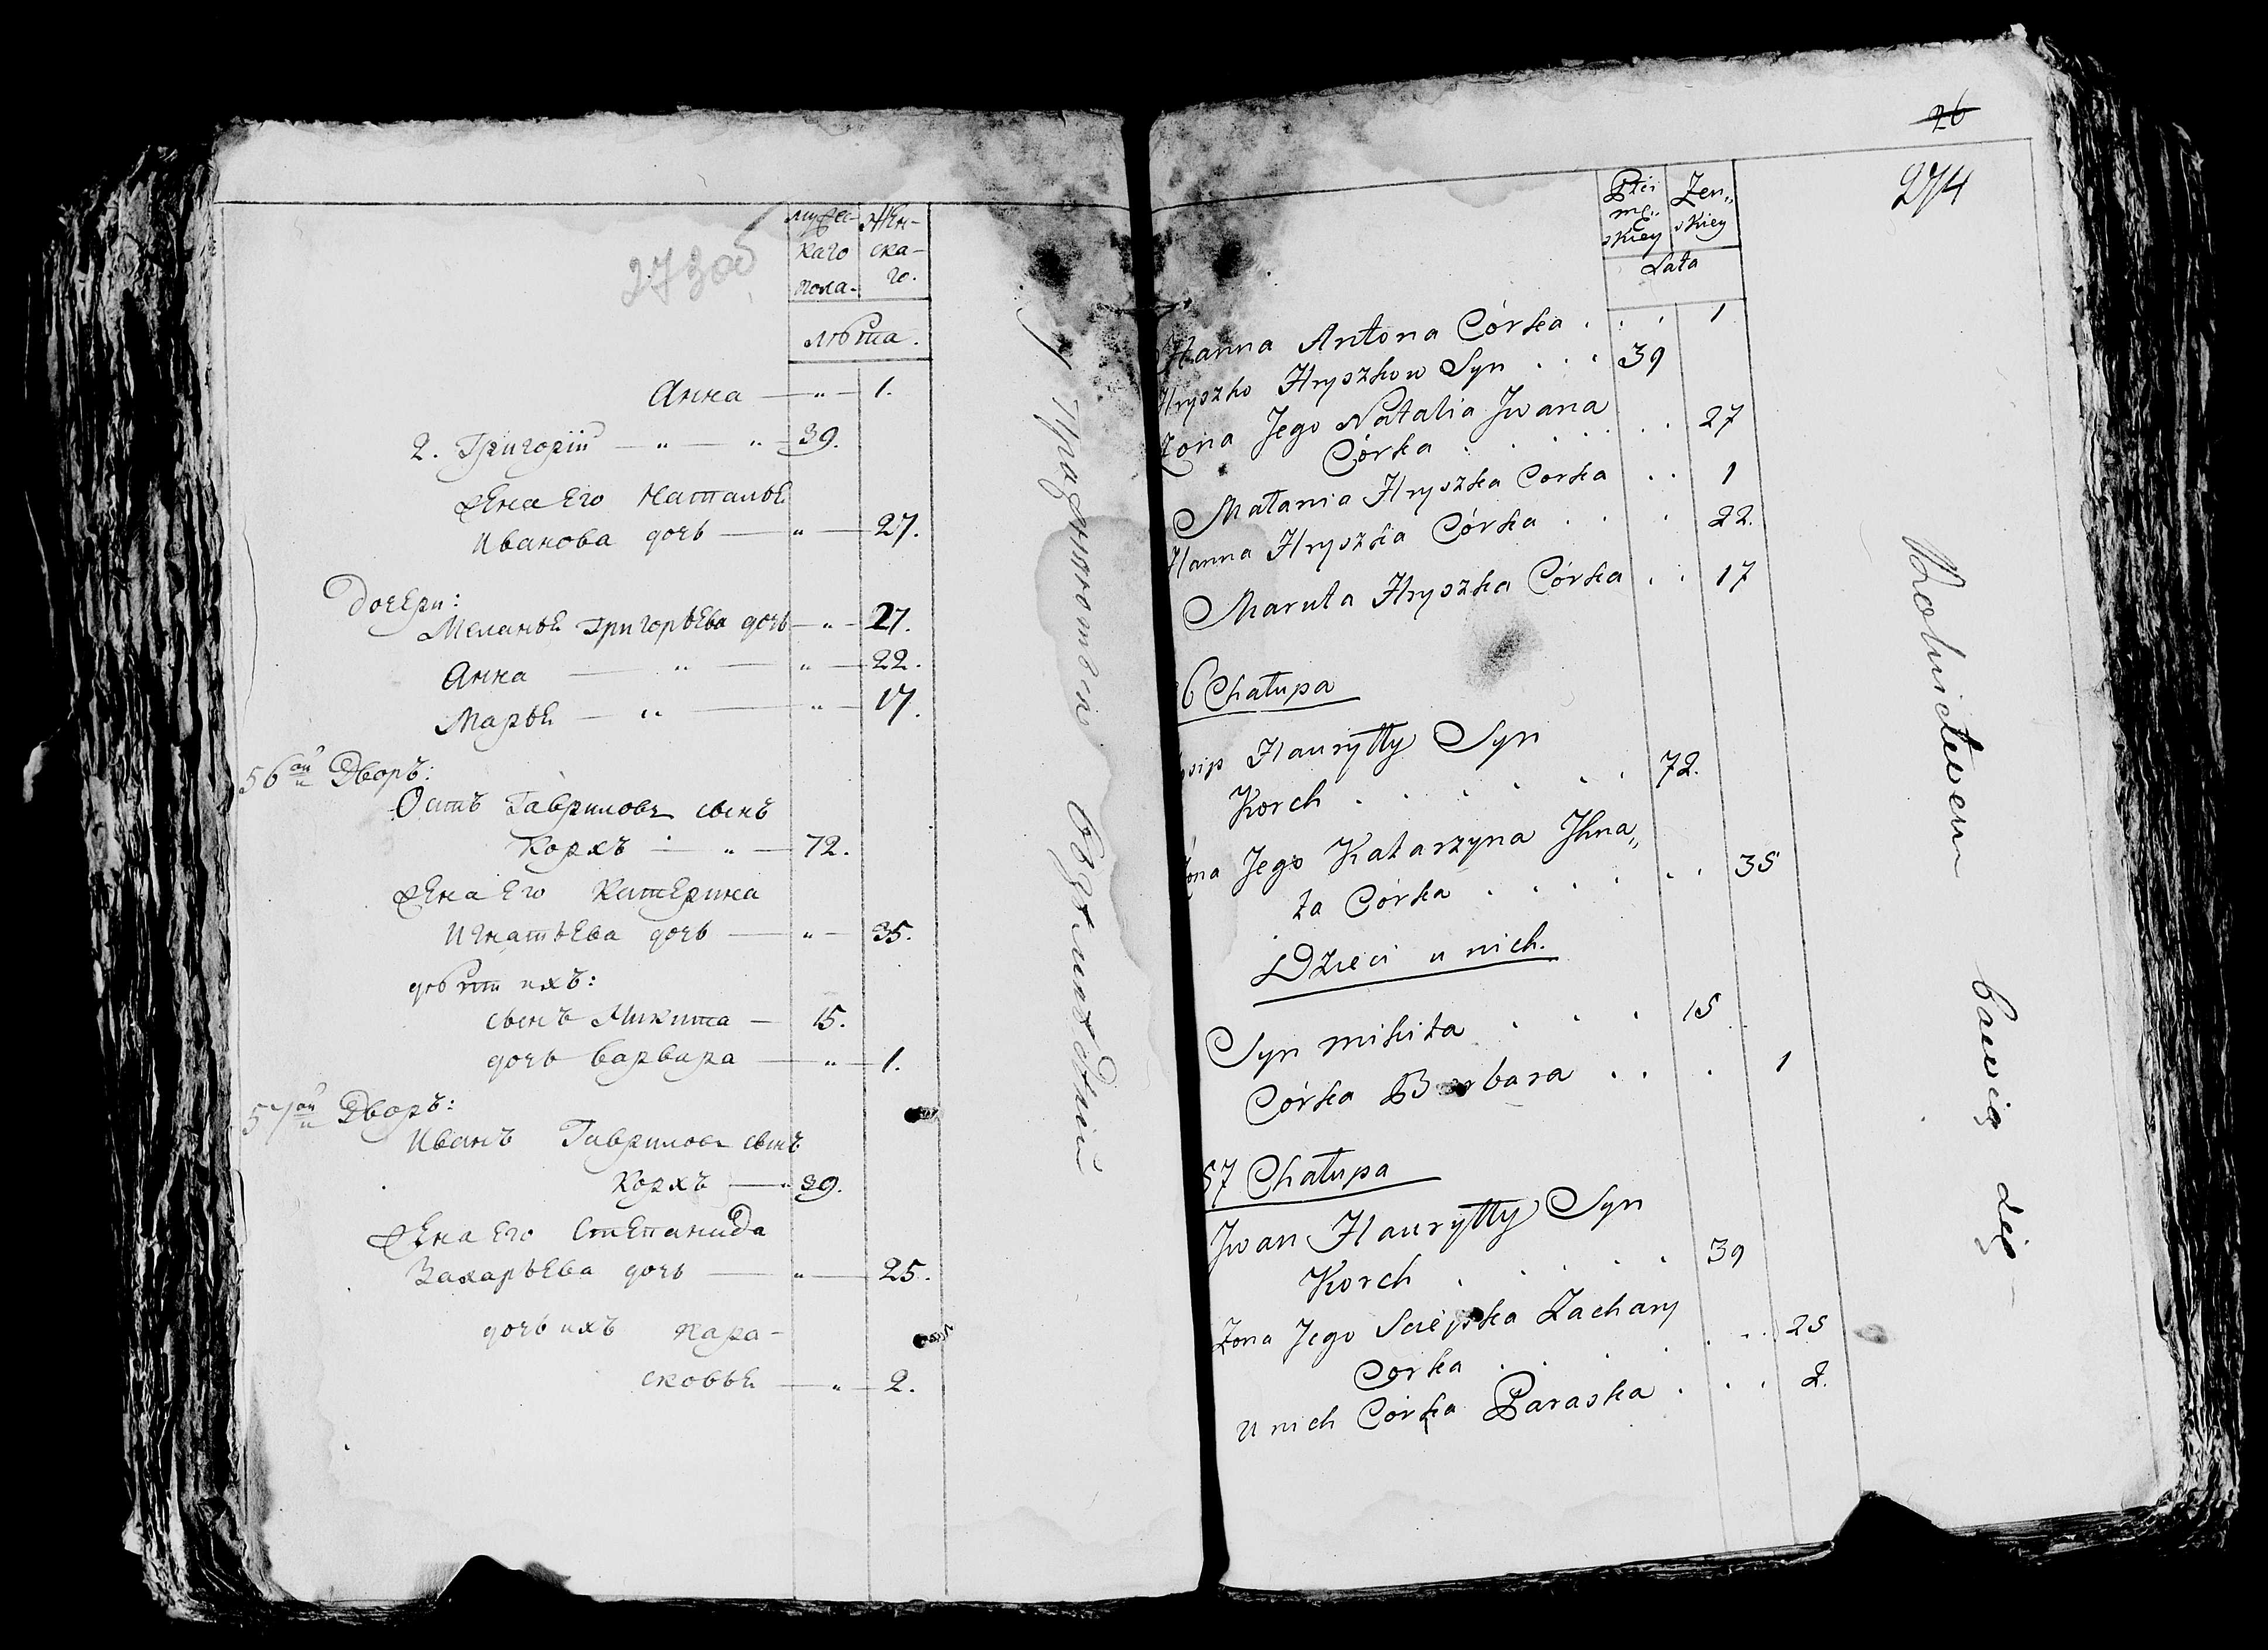 273 об
мужес-
каго
пола.
Жен-
ска-
го.
лѣта.
Анна — „ — 1.
2. Григорій — „ — „ — 39.
жена Его Наталья
Иванова дочь — „ — 27.
Дочери:
Меланья Григорьева дочь — „ — 27.
Анна — „ — „ — 22.
Марья — „ — „ — 17.
56ой Дворъ:
Осипъ Гавриловъ сынъ
Коржъ — „ — 72.
жена Его Катерина
Игнатьева дочь — „ — 35.
дѣти ихъ:
сынъ Микита — 15.
дочь Варвара — „ — 1.
57ой Дворъ:
Иванъ Гавриловъ сынъ
Коржъ — 39.
жена Его Степанида
Захарьева дочь — „ — 25.
дочь ихъ Пара-
сковья — „ — 2.
26
274
Płci
mę„
skiey
Zen„
skiey
Lata
Hanna Antona Córka . . . 1
Hryszko Hryszkow Syn . . . 39
Zona Jego Natalia Jwana
Córka . . . . . . 27
Małania Hryszka Corka . . 1
Hanna Hryszka Córka . . . 22.
Maruta Hryszka Córka . . 17
6 Chałupa
osip Hauryłły Syn
Korch . . . . . . 72.
ona Jego Katarzyna Jhna„
ta Córka . . . . . . 35
Dzieci u nich.
Syn mikita . . . 15
Córka Barbara . . . 1
57 Chałupa
Jwan Hauryłły Syn
Korch . . . . . 39
Zona Jego Sciepka Zachary
Corka . . . . . . 25
u nich Córka Paraska . . . 2.